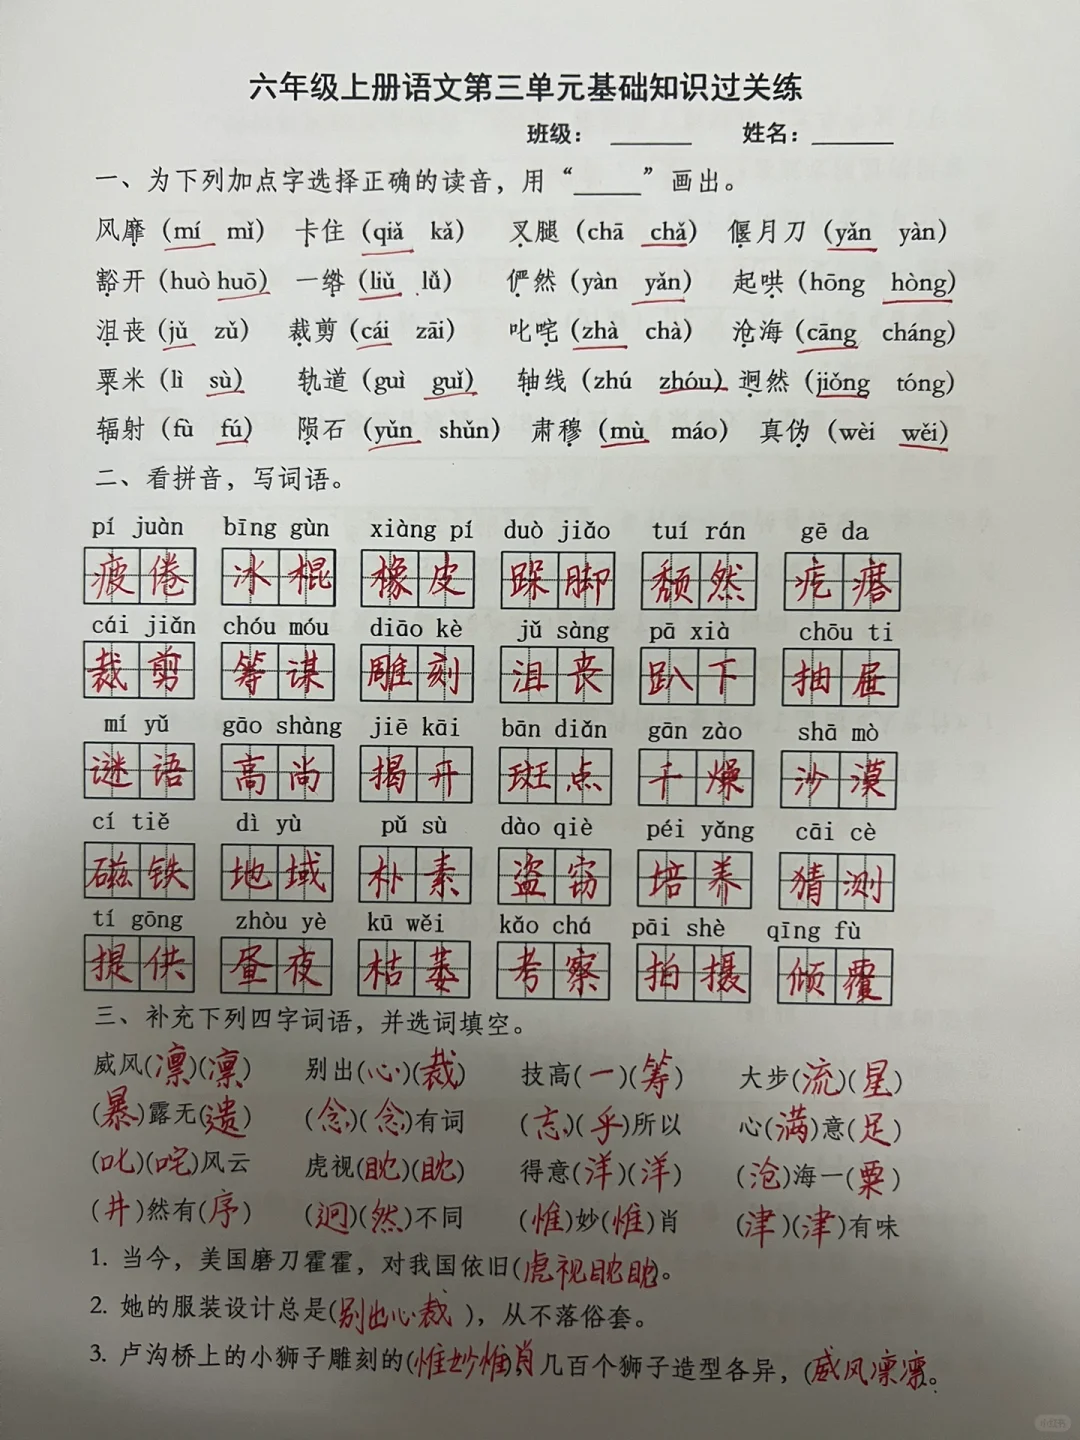 六年级上册语文第三单元基础知识过关练
班级：______ 姓名：______
一、为下列加点字选择正确的读音，用“_____”画出。
风靡（mí mǐ） 卡住（qiǎ kǎ） 叉腿（chā chǎ） 偃月刀（yǎn yàn）
豁开（huò huō） 一绺（liǔ lǚ） 俨然（yàn yǎn） 起哄（hōng hòng）
沮丧（jǔ zǔ） 裁剪（cái zāi） 叱咤（zhà chà） 沧海（cāng cháng）
粟米（lì sù） 轨道（guì guǐ） 轴线（zhú zhóu） 迥然（jiǒng tóng）
辐射（fù fú） 陨石（yǔn shǔn） 肃穆（mù máo） 真伪（wèi wěi）
二、看拼音，写词语。
pí juàn bīng gùn xiàng pí duò jiǎo tuí rán gē da
疲倦 冰棍 橡皮 跺脚 颓然 疙瘩
cái jiǎn chóu móu diāo kè jǔ sàng pā xià chōu ti
裁剪 筹谋 雕刻 沮丧 趴下 抽屉
mí yǔ gāo shàng jiē kāi bān diǎn gān zào shā mò
谜语 高尚 揭开 斑点 干燥 沙漠
cí tiě dì yù pǔ sù dào qiè péi yǎng cāi cè
磁铁 地域 朴素 盗窃 培养 猜测
tí gōng zhòu yè kū wěi kǎo chá pāi shè qīng fù
提供 昼夜 枯萎 考察 拍摄 倾覆
三、补充下列四字词语，并选词填空。
威风(凛)(凛) 别出(心)(裁) 技高(一)(筹) 大步(流)(星)
(暴)露无(遗) (念)(念)有词 (忘)(乎)所以 心(满)意(足)
(叱)(咤)风云 虎视(眈)(眈) 得意(洋)(洋) (沧)海一(粟)
(井)然有(序) (迥)(然)不同 (惟)妙(惟)肖 (津)(津)有味
1. 当今，美国磨刀霍霍，对我国依旧(虎视眈眈)。
2. 她的服装设计总是(别出心裁)，从不落俗套。
3. 卢沟桥上的小狮子雕刻的(惟妙惟肖)，几百个狮子造型各异，(威风凛凛)。
小红书